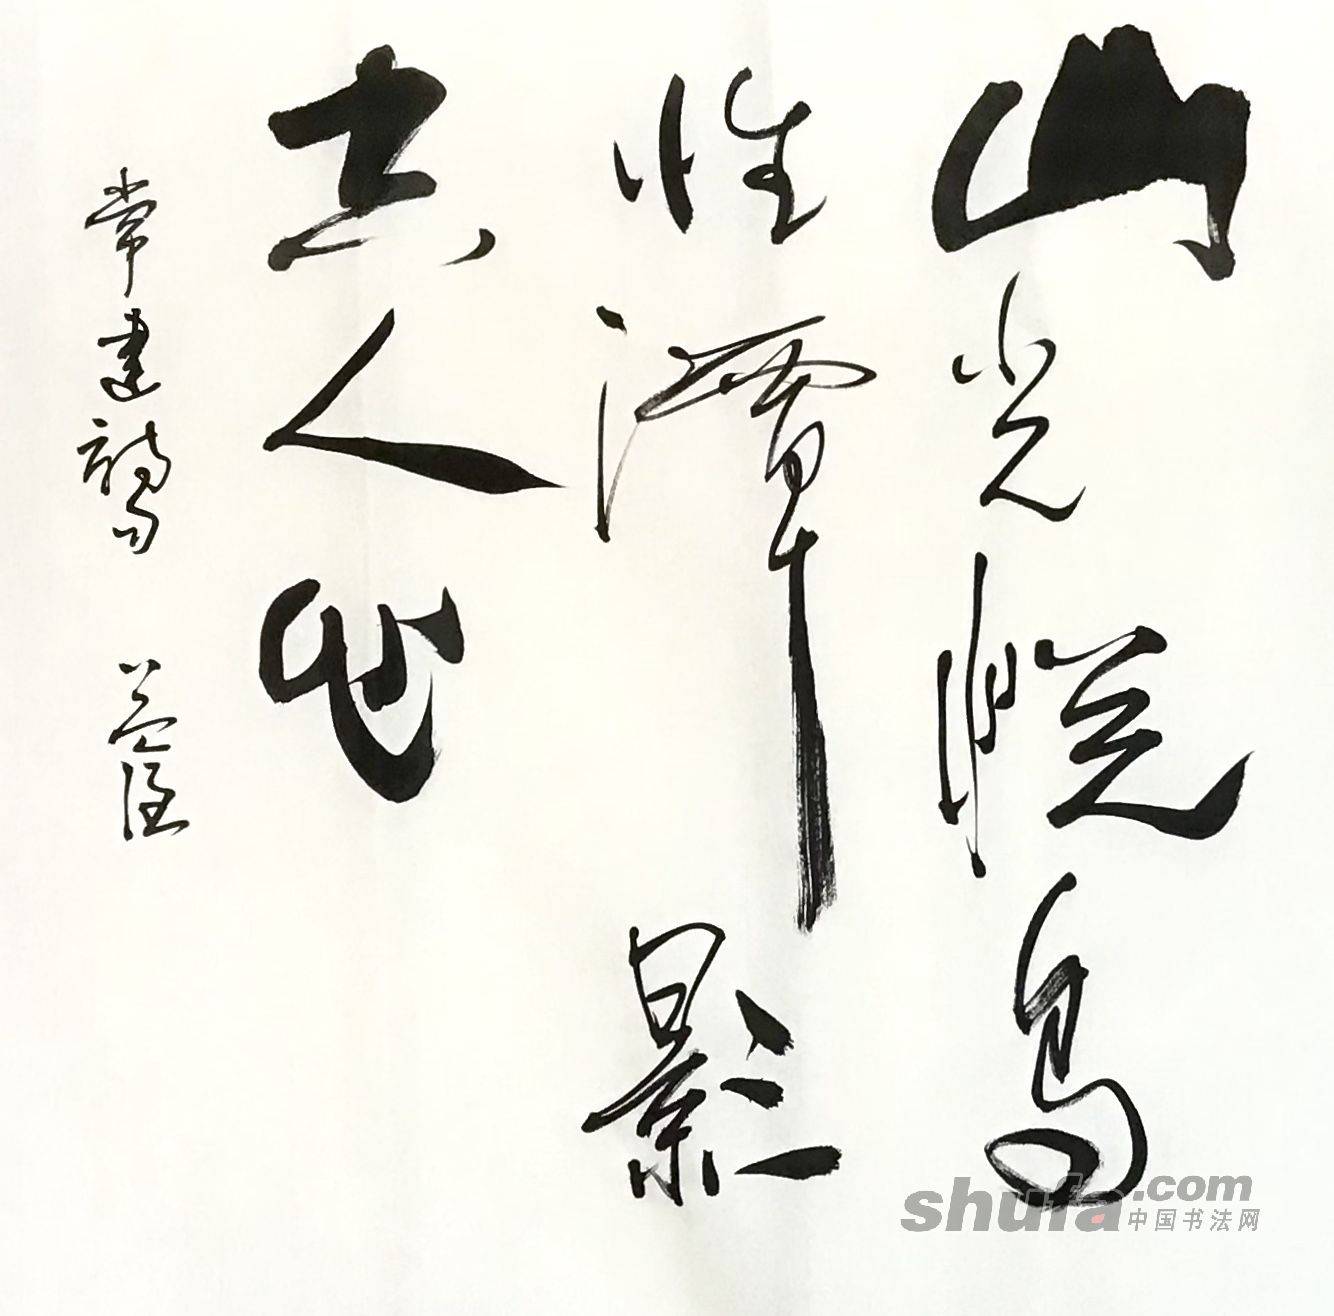 山光悦鸟
性潭影
去人心
常建詩句
shufa.com
中国书法网